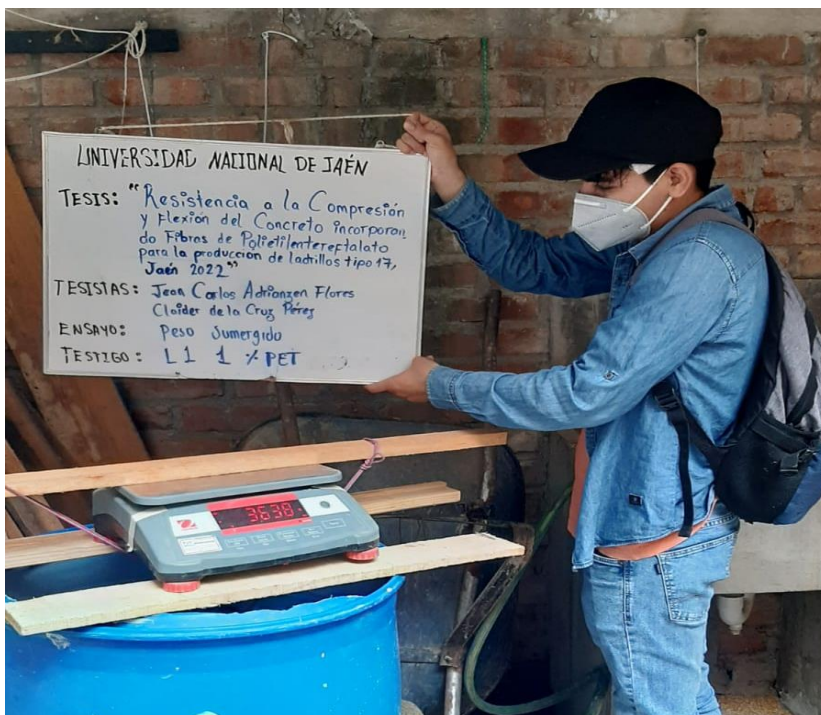 UNIVERSIDAD NACIONAL DE JAÉN
TESIS: "Resistencia a la Compresión
y Flexión del Concreto incorporan
do Fibras de Polietilentereftalato
para la producción de ladrillos tipo 17,
Jaén 2022"
TESISTAS: Jean Carlos Adrianzen Flores
Cloider de la Cruz Pérez
ENSAYO: Peso Sumergido
TESTIGO: L1 1 % PET
3638
OHAUS